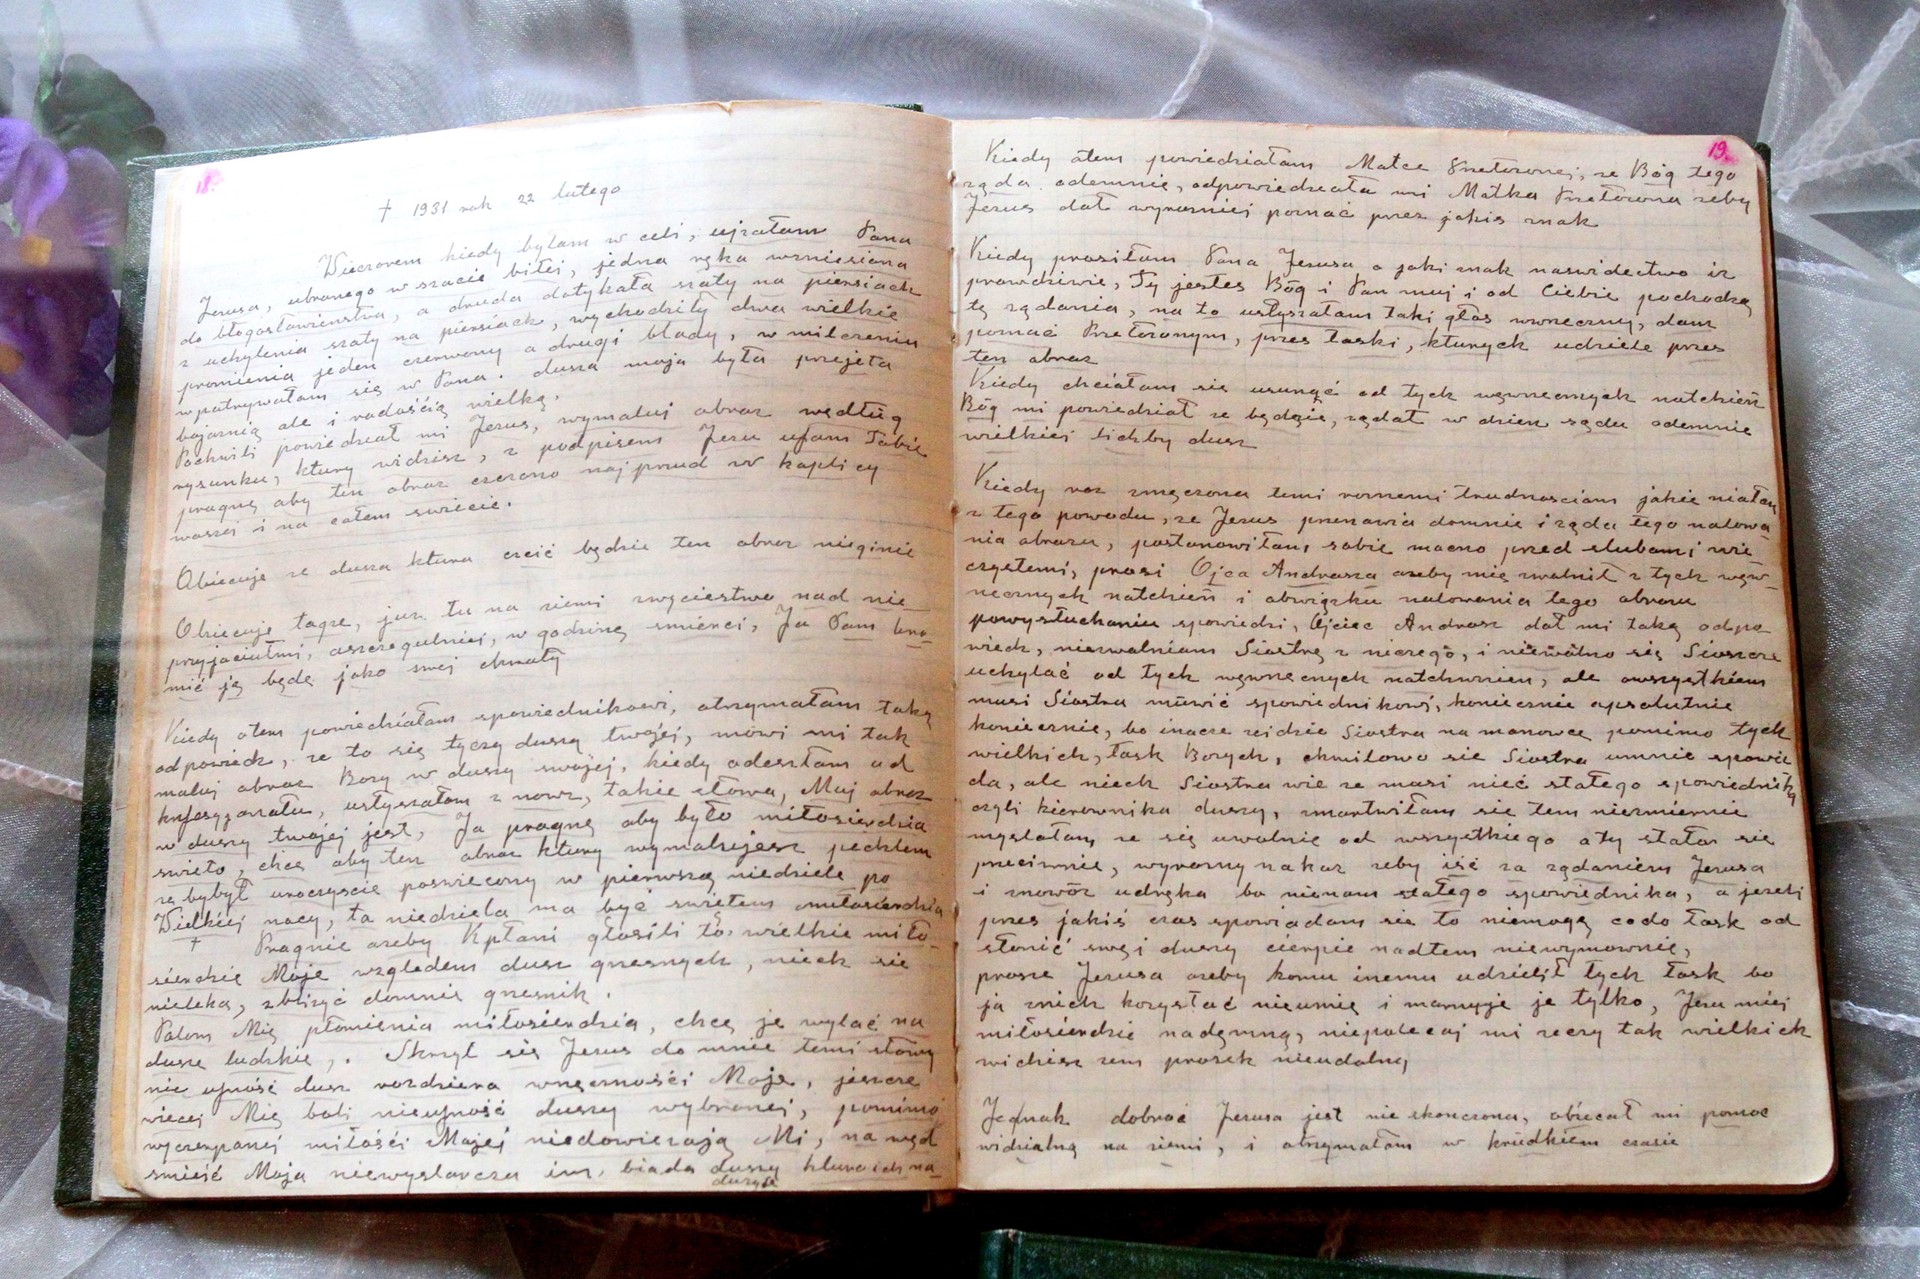 18.
† 1931 rok 22 lutego
Wieczorem kiedy byłam w celi, ujrzałam Pana
Jezusa, ubranego w szacie biłej, jedna ręka wzniesiona
do błogosławieństwa, a druda dotykała szaty na piersiach
z uchylenia szaty na piersiach, wychodziły dwa wielkie
promienia jeden czerwony a drugi blady, w milczeniu
wpatrywałam się w Pana. dusza moja była przejęta
bojaźnią ale i radością wielką.
Pochwili powiedział mi Jezus, wymaluj obraz według
rysunku, ktury widzisz, z podpisem Jezu ufam Tobie
pragnę aby ten obraz czczono najprzud w kaplicy
waszej i na całem świecie.
Obiecuję ze dusza ktura czcić będzie ten obraz nieginie
Obiecuję taqze, juz tu na ziemi zwycięstwo nad nie
przyjaciułmi, aszczegulniej, w godzinę śmierci, Ja Sam bro-
nić ją będę jako swej chwały
Kiedy otem powiedziałam spowiednikowi, otrzymałam taką
odpowiedz, ze to się tyczy duszą twojéj, mówi mi tak
maluj obraz Bozy w duszy swojéj, kiedy odeszłam od
konfesyjonału, usłyszałam z nowz, takie słowa, Muj obraz
w duszy twojej jest, Ja pragnę aby było miłosierdzia
swięto, chcę aby ten obraz ktury wymalujesz pędzlem
zębybył uroczyscie poswiecony w pierwszą niedziele po
Wielkiéj nocy, ta niedziela ma być swiętem miłosierdzia
† Pragnie azeby Kpłani głosili to wielkie miło-
sierdzie Moje względem dusz grzesznych, niech sie
nieleka, zbliżyć domnie grzesznik.
Palom Mię płomienia miłosierdzia, chcę je wylać na
dusze ludzkie,. Skrzył się Jezus do mnie temi słowy
nie ufność dusz rozdziera wnęcznośći Moje, jeszcze
wiecej Mię boli nieufność duszy wybranej, pomimo
wyczerpanej miłośći Mojej niedowierzają Mi, na węd
śmierć Moja niewystarcza im, biada duszy klura ich na-
duzyje
19.
Kiedy otem powiedziałam Matce Przełozonej, ze Bóg tego
ząda odemnie, odpowiedziała mi Matka Przełozona zeby
Jezus dał wyrazniej poznać przez jakis znak
Kiedy prosiłam Pana Jezusa o jaki znak naswidectwo iz
prawdziwie, Ty jestes Bóg i Pan muj i od Ciebie pochodzą
tę ządania, na to usłyszałam taki głos wwneczny, dam
poznać Przełozonym, przes łaski, kturych udziele przes
ten obraz
Kiedy chciałam sie usungć od tych węwnecznych natchień
Bóg mi powiedział ze będzie, ządał w dzien sądu odemnie
wielkiej lichby dusz
Kiedy raz zmęczona temi roznemi trudnosciam jakie miałam
z tego powodu, ze Jezus przemawia domnie i ząda tego malowa
nia obrazu, postanowiłam, sobie mocno przed slubami wie
czystemi, prosi Ojca Andrasza azeby mię zwalnił z tych węw-
necznych natchień i obwiązku malowania tego obrazu
powysłuchaniu spowiedzi, Ojciec Andrasz dał mi taką odpo
wiedz, niezwalniam Siostrę z niczego, i niewolno się Sioszcze
uchylać od tych węwnecznych natchwnien, ale owszystkiem
musi Siostra mówić spowiednikowi, koniecznie apsolutnie
koniecznie, bo inacze zeidzie Siostra na monowce pomimo tych
wielkich, łask Bozych, chwilowo sie Siostra umnie spowie
da, ale niech Siostra wie ze musi mieć stałego spowiednika
czyli kierownika duszy, zmartwiłam się tem niezmiernie
myslałam, ze się uwolnie od wszystkiego aty stało sie
przeciwnie, wyrazny nakaz zeby iść za ządaniem Jezusa
i znowóz udręka bo niemam stałego spowiednika, a jezeli
przes jakiś czas spowiadam sie to niemogę codo łask od
słonić swęj duszy cierpie nadtem niewymownie,
prosze Jezusa azeby komu inemu udzielił tych łask bo
ja znich korzystać nieumię i marnuje je tylko, Jezu miej
miłosierdzie nademną, niepolecaj mi rzeczy tak wielkich
widzisz zem prosek nieudolny
Jednak dobroć Jezusa jest nie skonczona, obiecał mi pomoc
widzialną na ziemi, i otrzymałam w krudkiem czasie